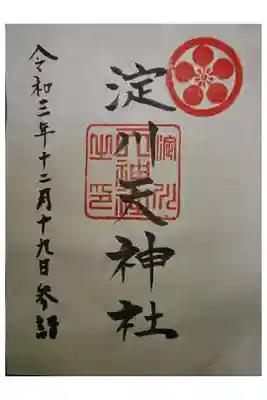 淀川天神社
令和三年十二月十九日参詣